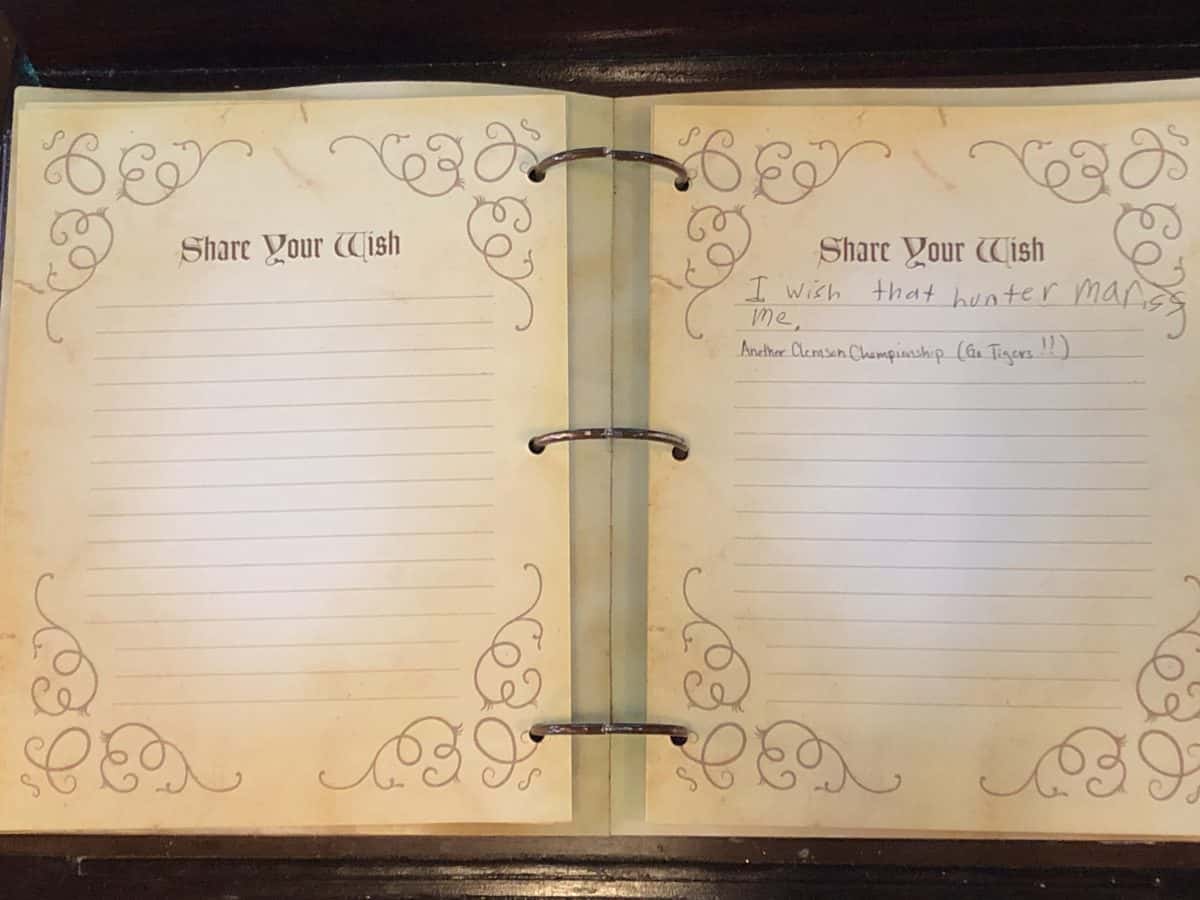 Share Your Wish
Share Your Wish
I wish that hunter mariss
me.
Another Clemson Championship (Go Tigers!!)